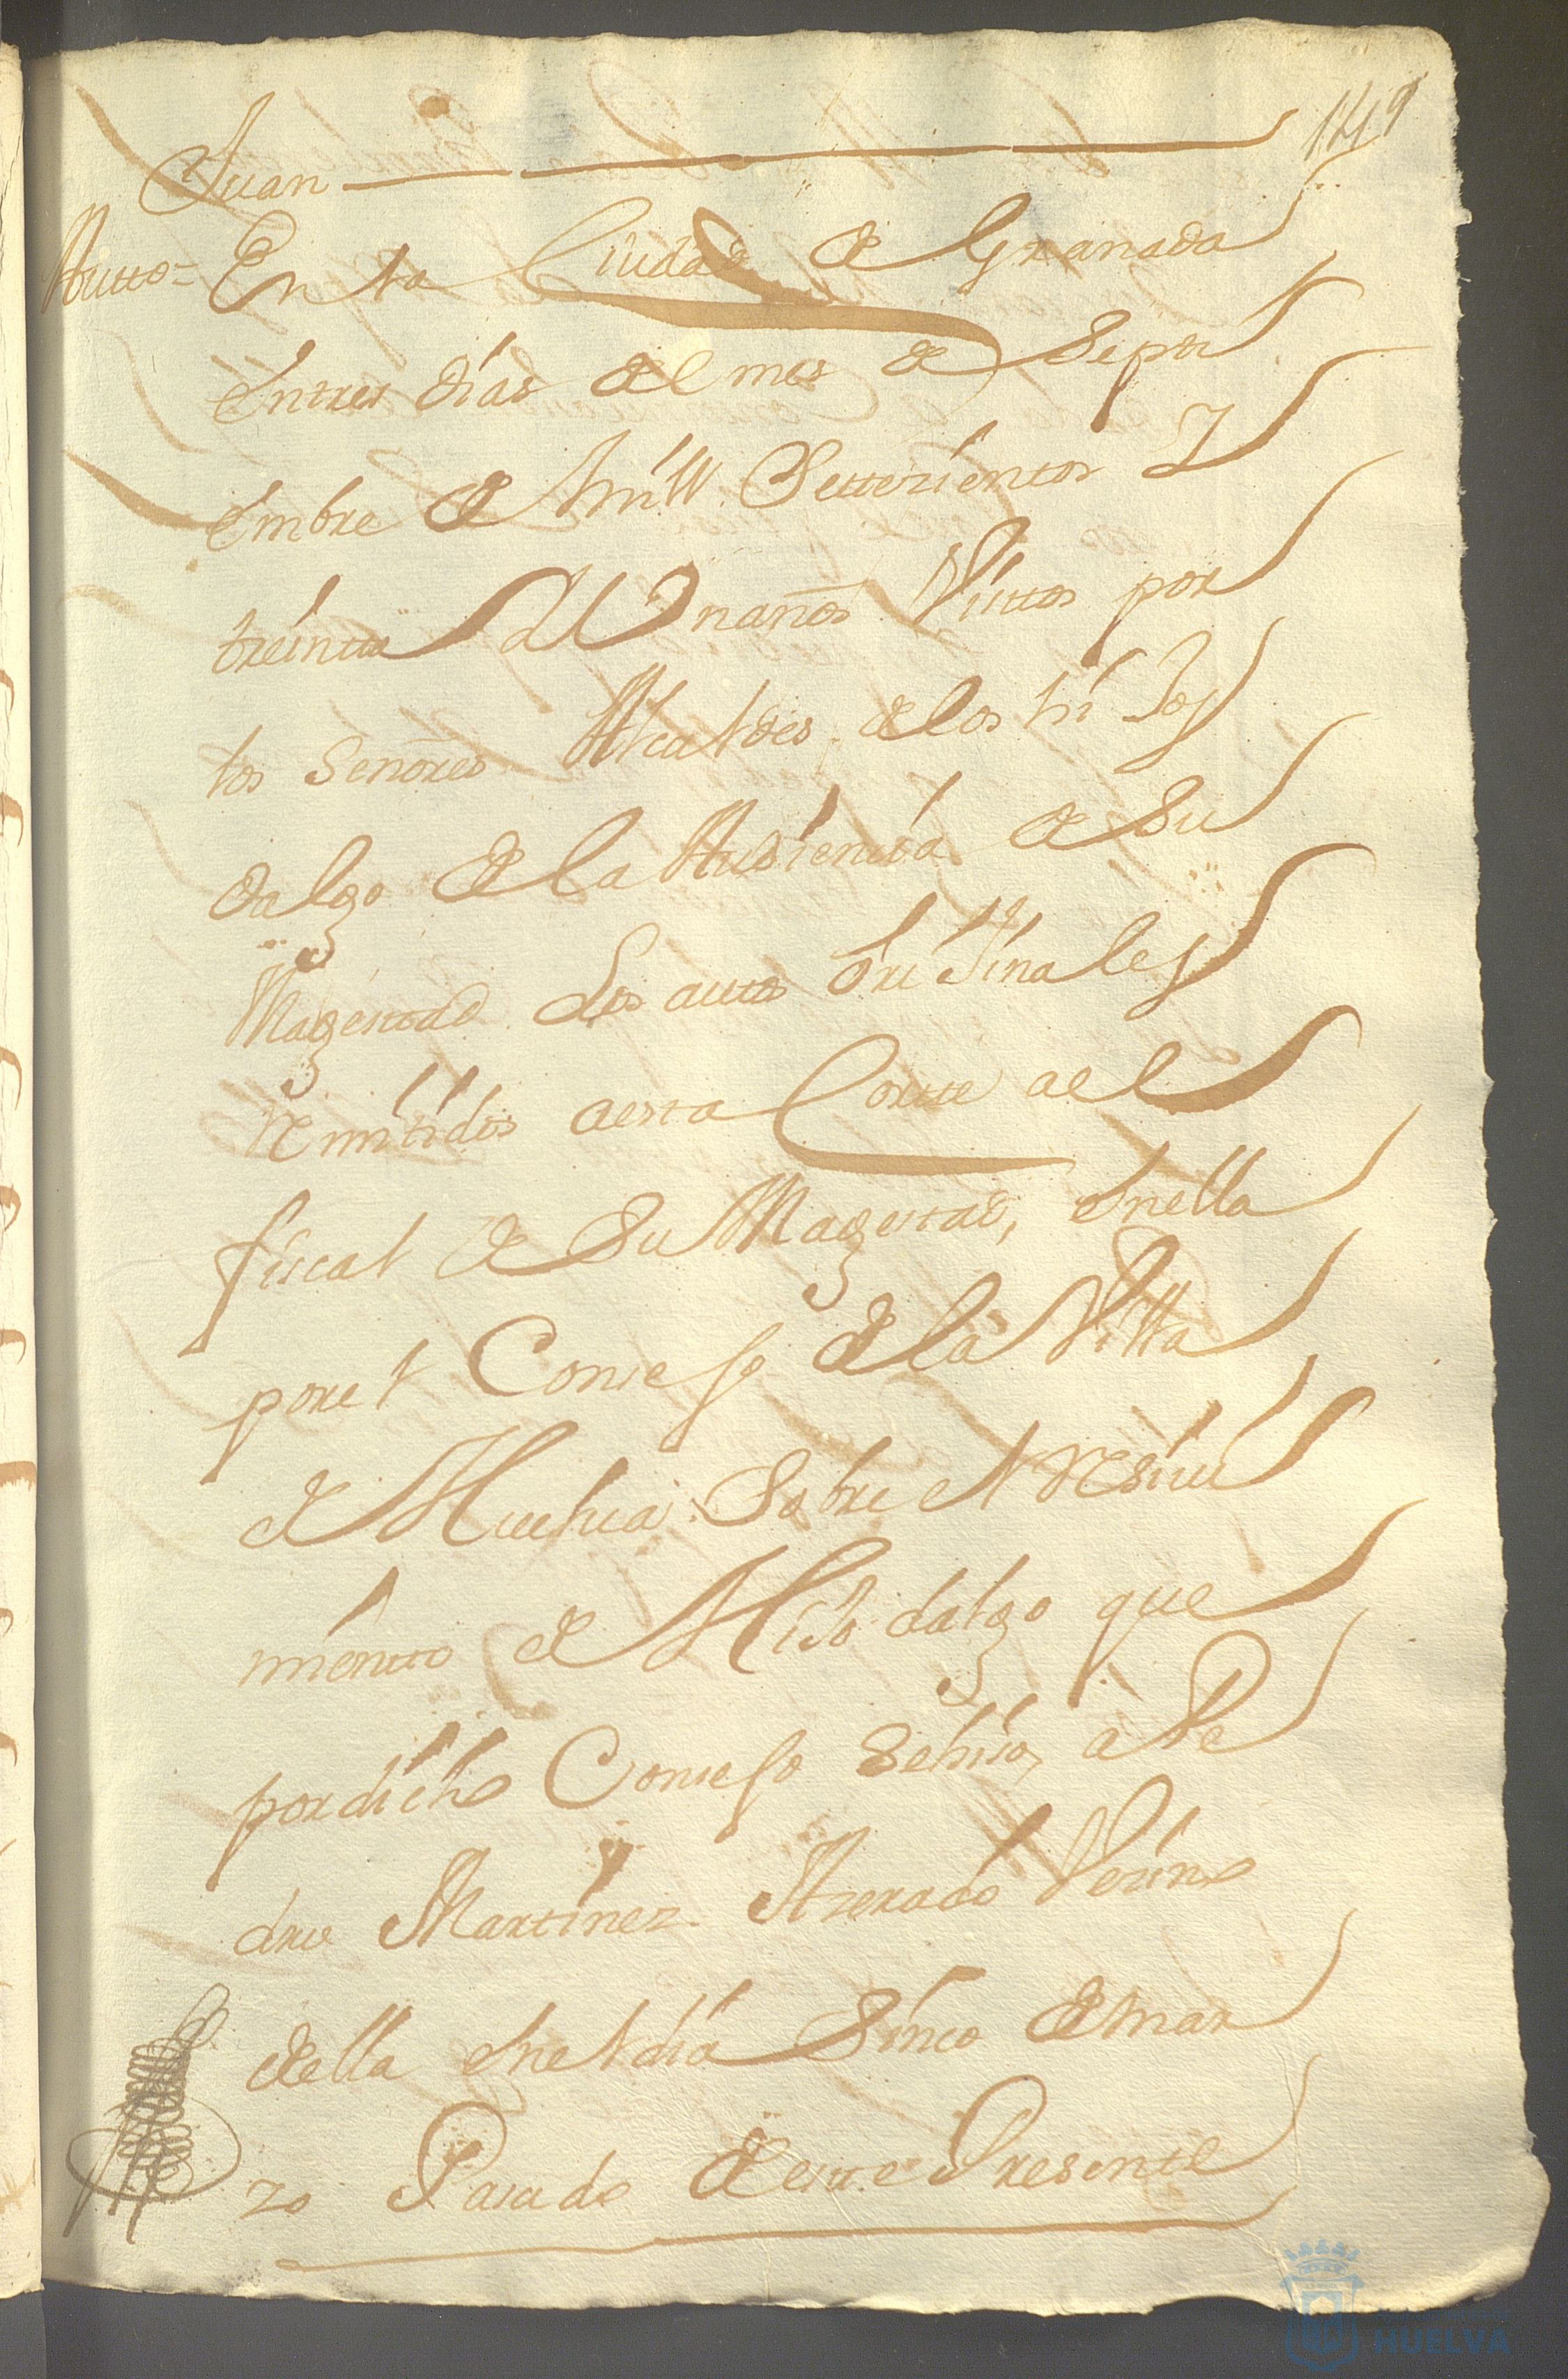 149
Juan
Autto = En la Ciudad de Granada
entres días del mes de Septi
embre de Mill Settezientos Y
treinta Y Un años Vistos por
los Señores Alcaldes de los hi Jos
dalgo de la Audiencia de Su
Magestad Los autos OriJinales
Remitidos a esta Cortte a el
fiscal de Su Magestad, enella
porel Consejo de la Villa
de Huelua Sobre el Resiui
miento de HiJo dalgo que
pordicho Consejo Sehiso, a Pe
dro Martinez Azerado Vezino
della eneldia Sinco demar
zo Pasado deeste Presente
HUELVA